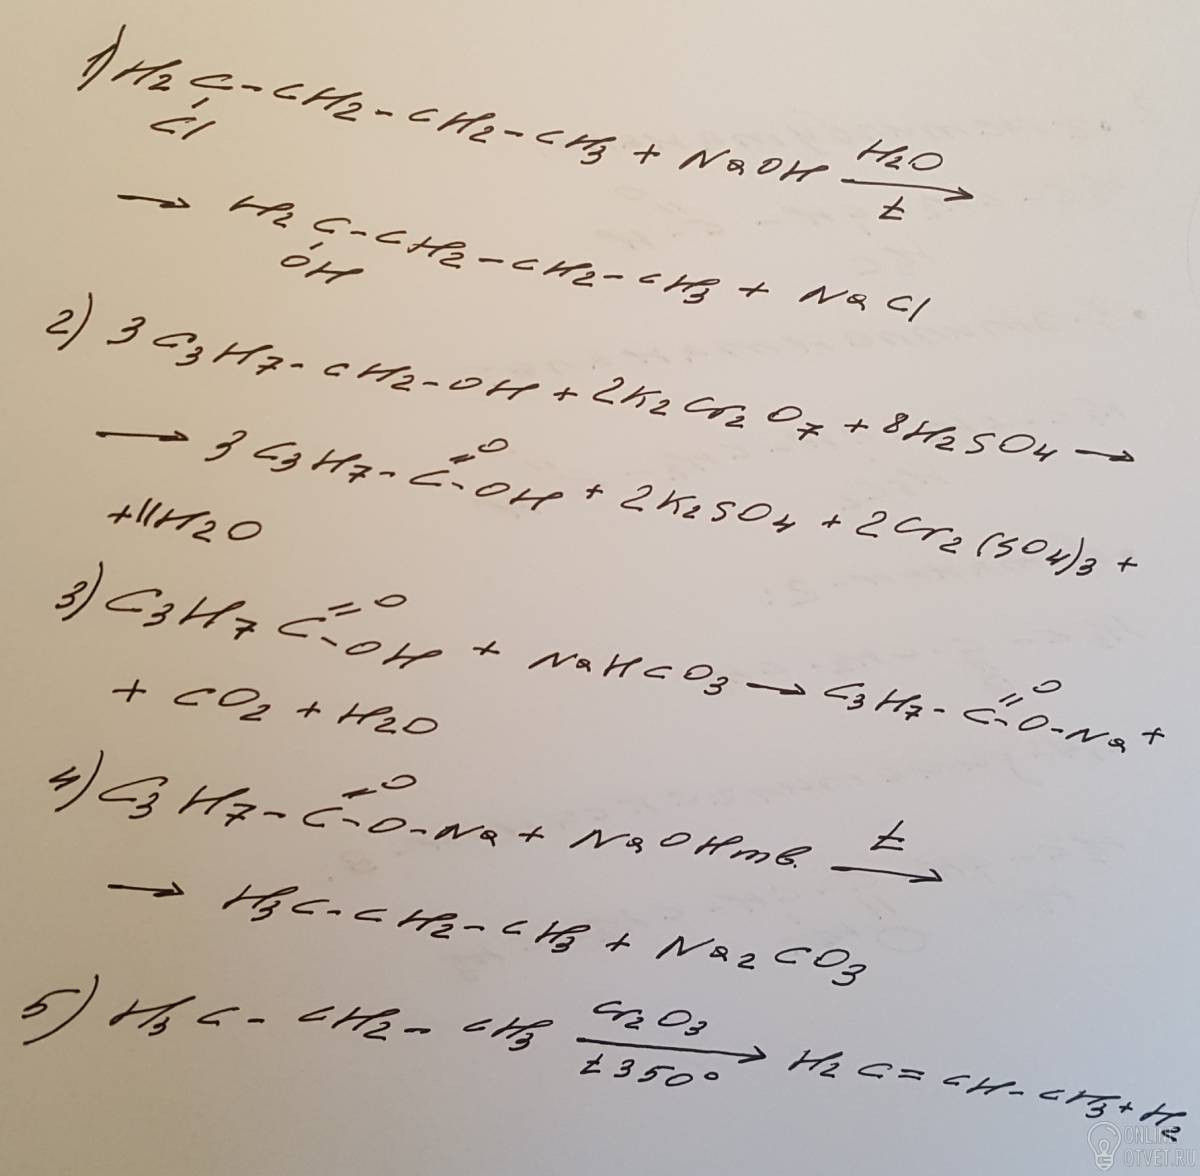 1) H2C-CH2-CH2-CH3 + NaOH H2O→
Cl t
→ H2C-CH2-CH2-CH3 + NaCl
OH
2) 3C3H7-CH2-OH + 2K2Cr2O7 + 8H2SO4 →
→ 3C3H7-C=O-OH + 2K2SO4 + 2Cr2(SO4)3 +
+11H2O
3) C3H7C=O-OH + NaHCO3 → C3H7-C=O-O-Na +
+ CO2 + H2O
4) C3H7-C=O-O-Na + NaOHтв. t→
→ H3C-CH2-CH3 + Na2CO3
5) H3C-CH2-CH3 Cr2O3→ H2C=CH-CH3+H2
t350°
ONLINE
OTVET.RU